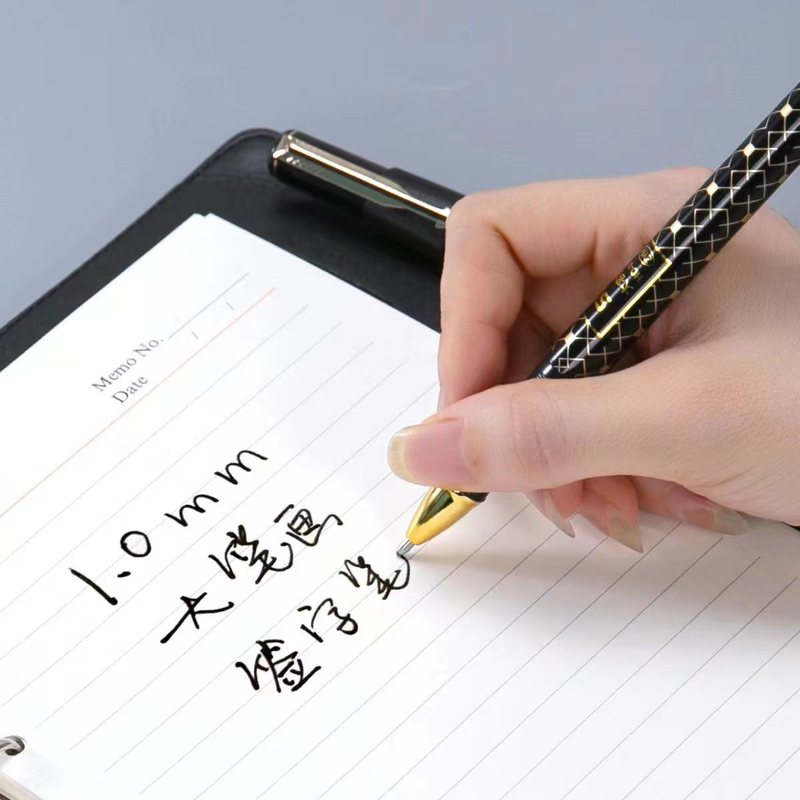 Memo No.
Date / /
1.0mm
大笔画
签字笔